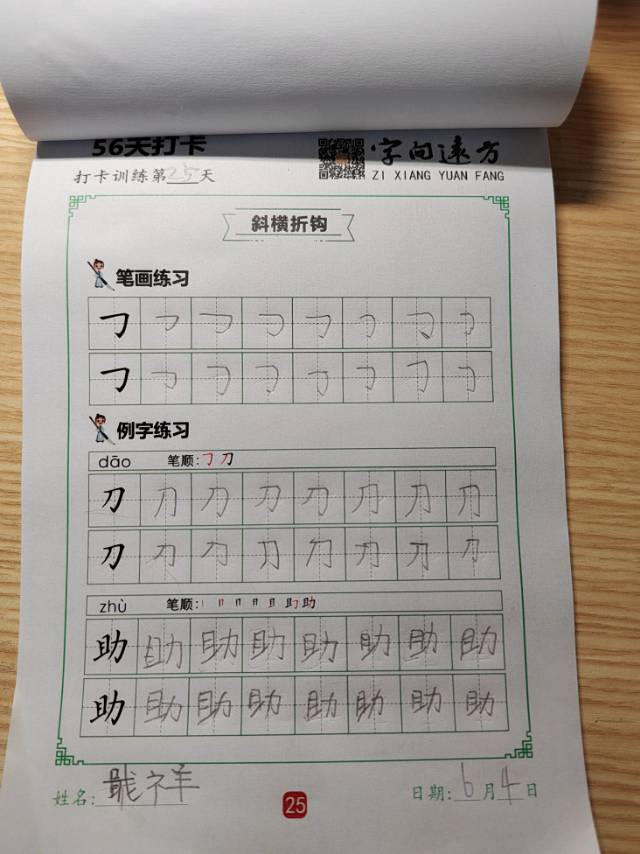 56天打卡
字向远方
打卡训练第25天
ZI XIANG YUAN FANG
斜横折钩
笔画练习
㇆ ㇆ ㇆ ㇆ ㇆ ㇆ ㇆ ㇆
㇆ ㇆ ㇆ ㇆ ㇆ ㇆ ㇆ ㇆
例字练习
dāo 笔顺:㇆刀
刀 刀 刀 刀 刀 刀 刀 刀
刀 刀 刀 刀 刀 刀 刀 刀
zhù 笔顺:
助 助 助 助 助 助 助 助
助 助 助 助 助 助 助 助
姓名:
25
日期:6月4日